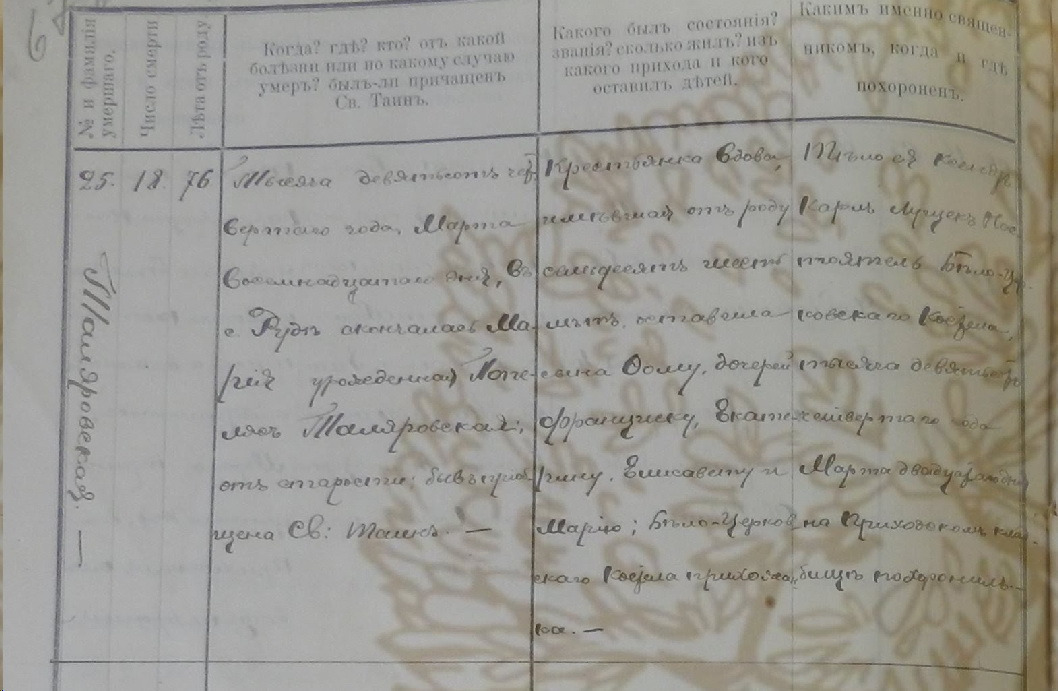 № и фамилія
умершаго.
Число смерти
Лѣта отъ роду
Когда? гдѣ? кто? отъ какой
болѣзни или по какому случаю
умеръ? былъ-ли причащенъ
Св. Таинъ.
Какого былъ состоянія?
званія? сколько жилъ? изъ
какого прихода и кого
оставилъ дѣтей.
Какимъ именно священ-
никомъ, когда и гдѣ
похороненъ.
25.
Маляровская. —
18.
76
Тысяча девятьсотъ чет-
вертаго года, Марта
восемнадцатаго дня, въ
с. Рудѣ скончалась Ма-
рія урожденная
Маляровская,
отъ старости; бывъ приоб-
щена Св: Таинъ. —
Крестьянка вдова,
имѣвшая отъ роду
семьдесятъ шесть
лѣтъ, оставила
сына Фому, дочерей
Франциску, Екате-
рину, Елисавету и
Марію; Бѣло-Церков-
скаго Костела прихожан-
ка. —
Тѣло ея Ксендзъ
Карлъ
Бѣло-Цер-
ковскаго Костела,
тысяча девятьсотъ
четвертаго года
Марта двадцатаго дня
на приходскомъ клад-
бищѣ похоронилъ. —